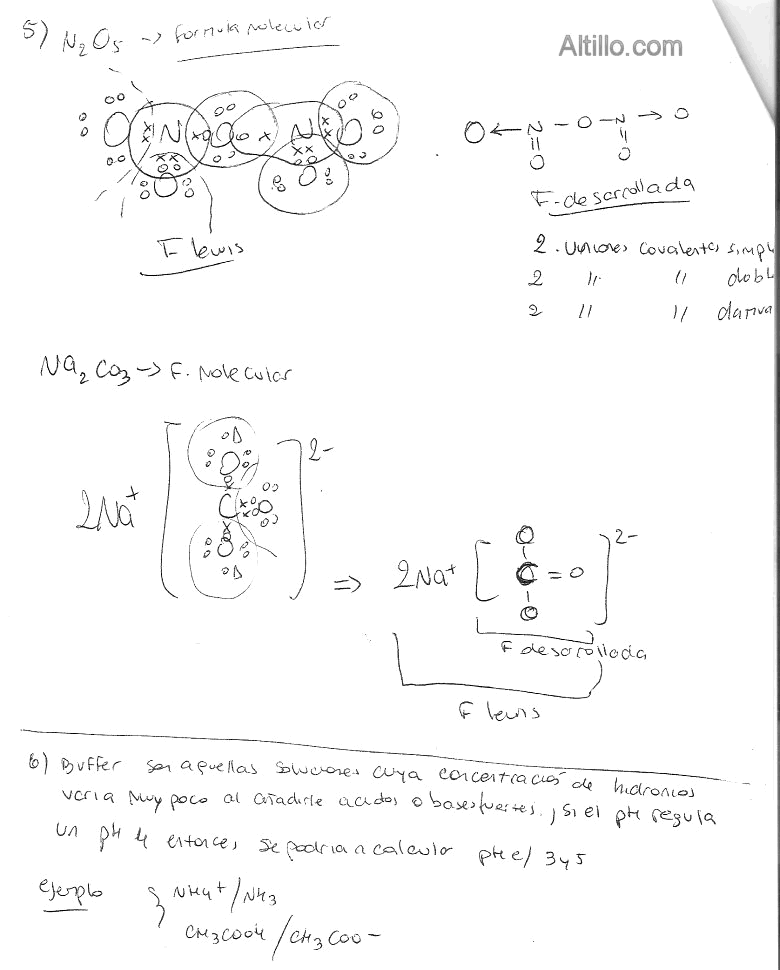 5) N₂O₅ → formula molecular
Altillo.com
O ← N – O – N → O
O O
F. desarrollada
F lewis
2 . Uniones covalentes simpl
2 " " dobl
2 " " dativa
Na₂CO₃ → F. Molecular
2Na⁺ [O C O O]²⁻
⇒ 2Na⁺ [O C = O O]²⁻
F desarrollada
F lewis
6) Buffer son aquellas soluciones cuya concentración de hidronios
varia muy poco al añadirle acidos o bases fuertes. , Si el pH regula
un pH 4 entonces se podria n calcular pH e/ 3 y 5
ejemplo } NH₄⁺/NH₃
CH₃COOH/CH₃COO–